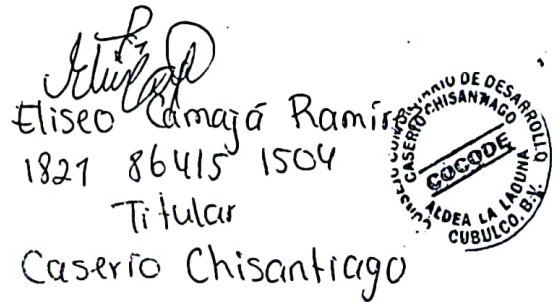 Eliseo Camajá Ramírez
1821 86415 1504
Titular
Caserio Chisantiago
CONSEJO COMUNITARIO DE DESARROLLO
CASERIO CHISANTIAGO
COCODE
ALDEA LA LAGUNA
CUBULCO. B.V.